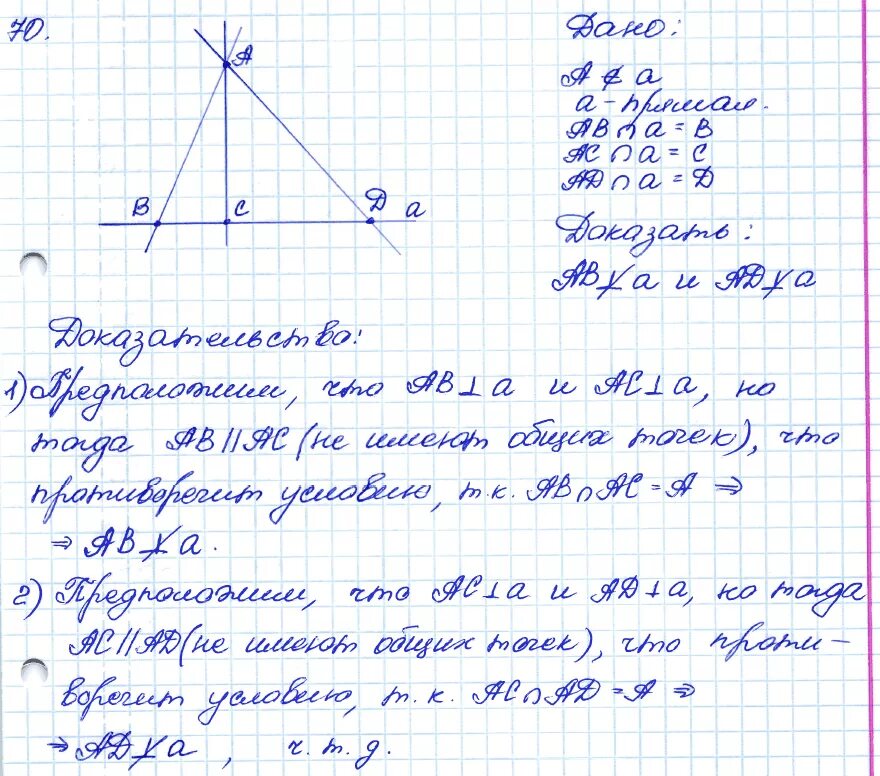 70.
A
B
C
D
a
Дано:
A ∉ a
a - прямая.
AB ∩ a = B
AC ∩ a = C
AD ∩ a = D
Доказать:
AB ⊥̸ a и AD ⊥̸ a
Доказательство:
1) Предположим, что AB ⊥ a и AC ⊥ a, но
тогда AB || AC (не имеют общих точек), что
противоречит условию, т.к. AB ∩ AC = A ⇒
⇒ AB ⊥̸ a.
2) Предположим, что AC ⊥ a и AD ⊥ a, но тогда
AC || AD (не имеют общих точек), что проти-
воречит условию, т.к. AC ∩ AD = A ⇒
⇒ AD ⊥̸ a, ч.т.д.